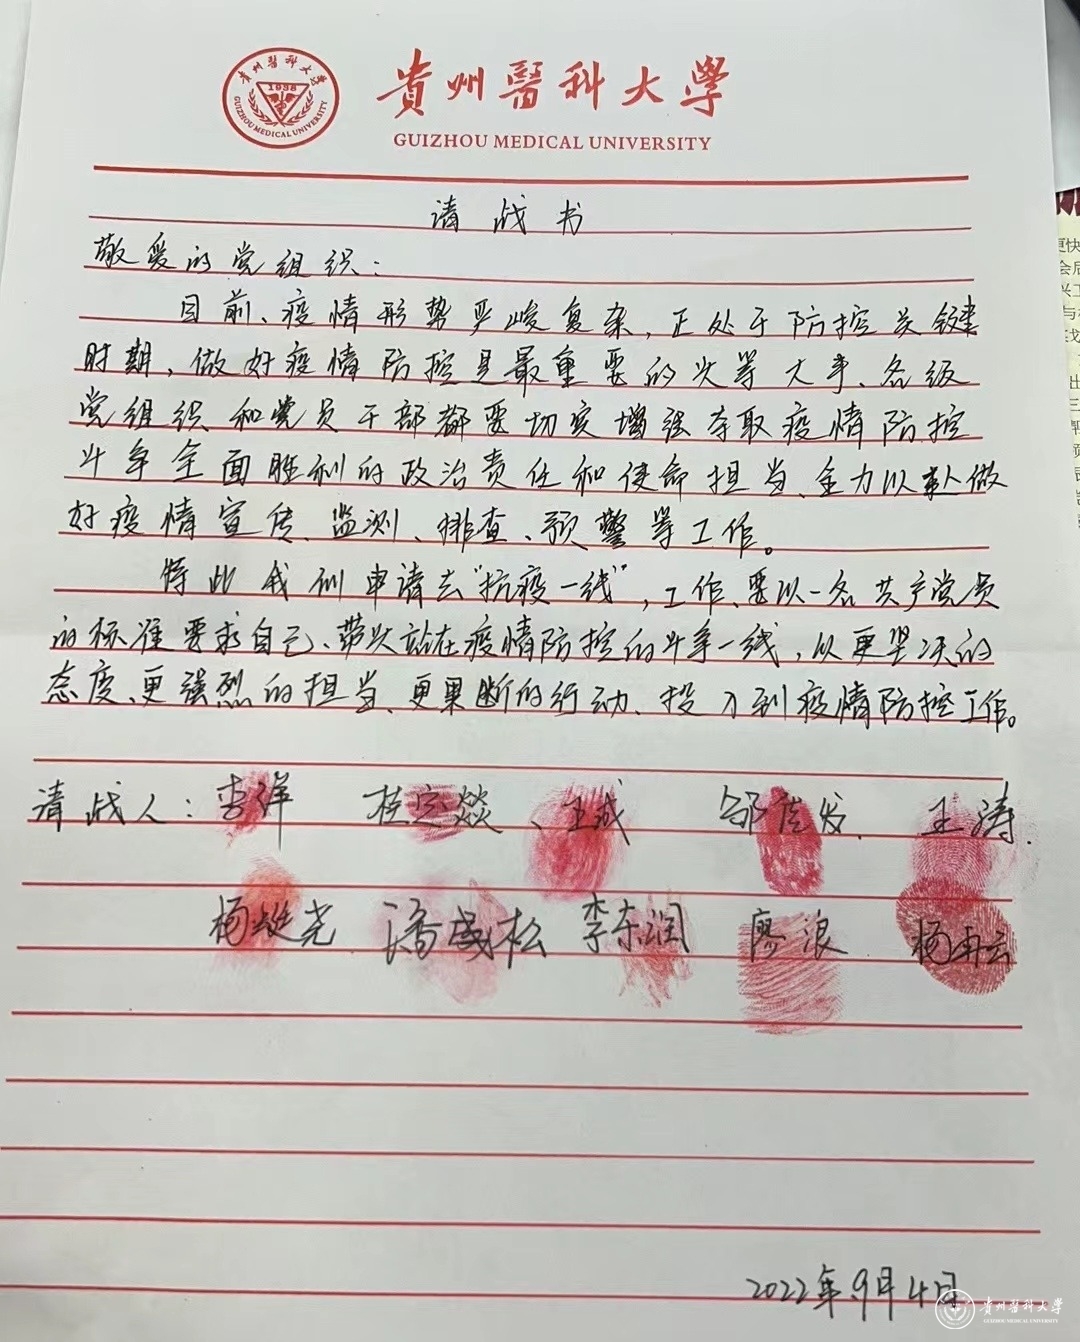 貴州醫科大學
1938
GUIZHOU MEDICAL UNIVERSITY
貴州醫科大學
GUIZHOU MEDICAL UNIVERSITY
请战书
敬爱的党组织：
目前、疫情形势严峻复杂，正处于防控关键
时期，做好疫情防控是最重要的头等大事、各级
党组织和党员干部都要切实增强夺取疫情防控
斗争全面胜利的政治责任和使命担当、全力以赴做
好疫情宣传、监测、排查、预警等工作。
特此我们申请去“抗疫一线”，工作、要以一名共产党员
的标准要求自己、带头站在疫情防控的斗争一线，以更坚决的
态度、更强烈的担当、更果断的行动、投入到疫情防控工作。
请战人：李洋 桂定燚、王诚 邹佳发、王涛、
杨堯 潘盛松 李东润 廖浪 杨再云
2022年9月4日
貴州醫科大學
GUIZHOU MEDICAL UNIVERSITY